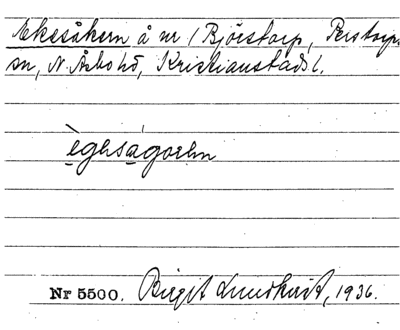 Ekesåkern å nr 1 Björstorp, Perstorps
sn, N. Åsbo hd, Kristianstads l.
ègəságoən
Nr 5500. Birgit Lundkvist, 1936.